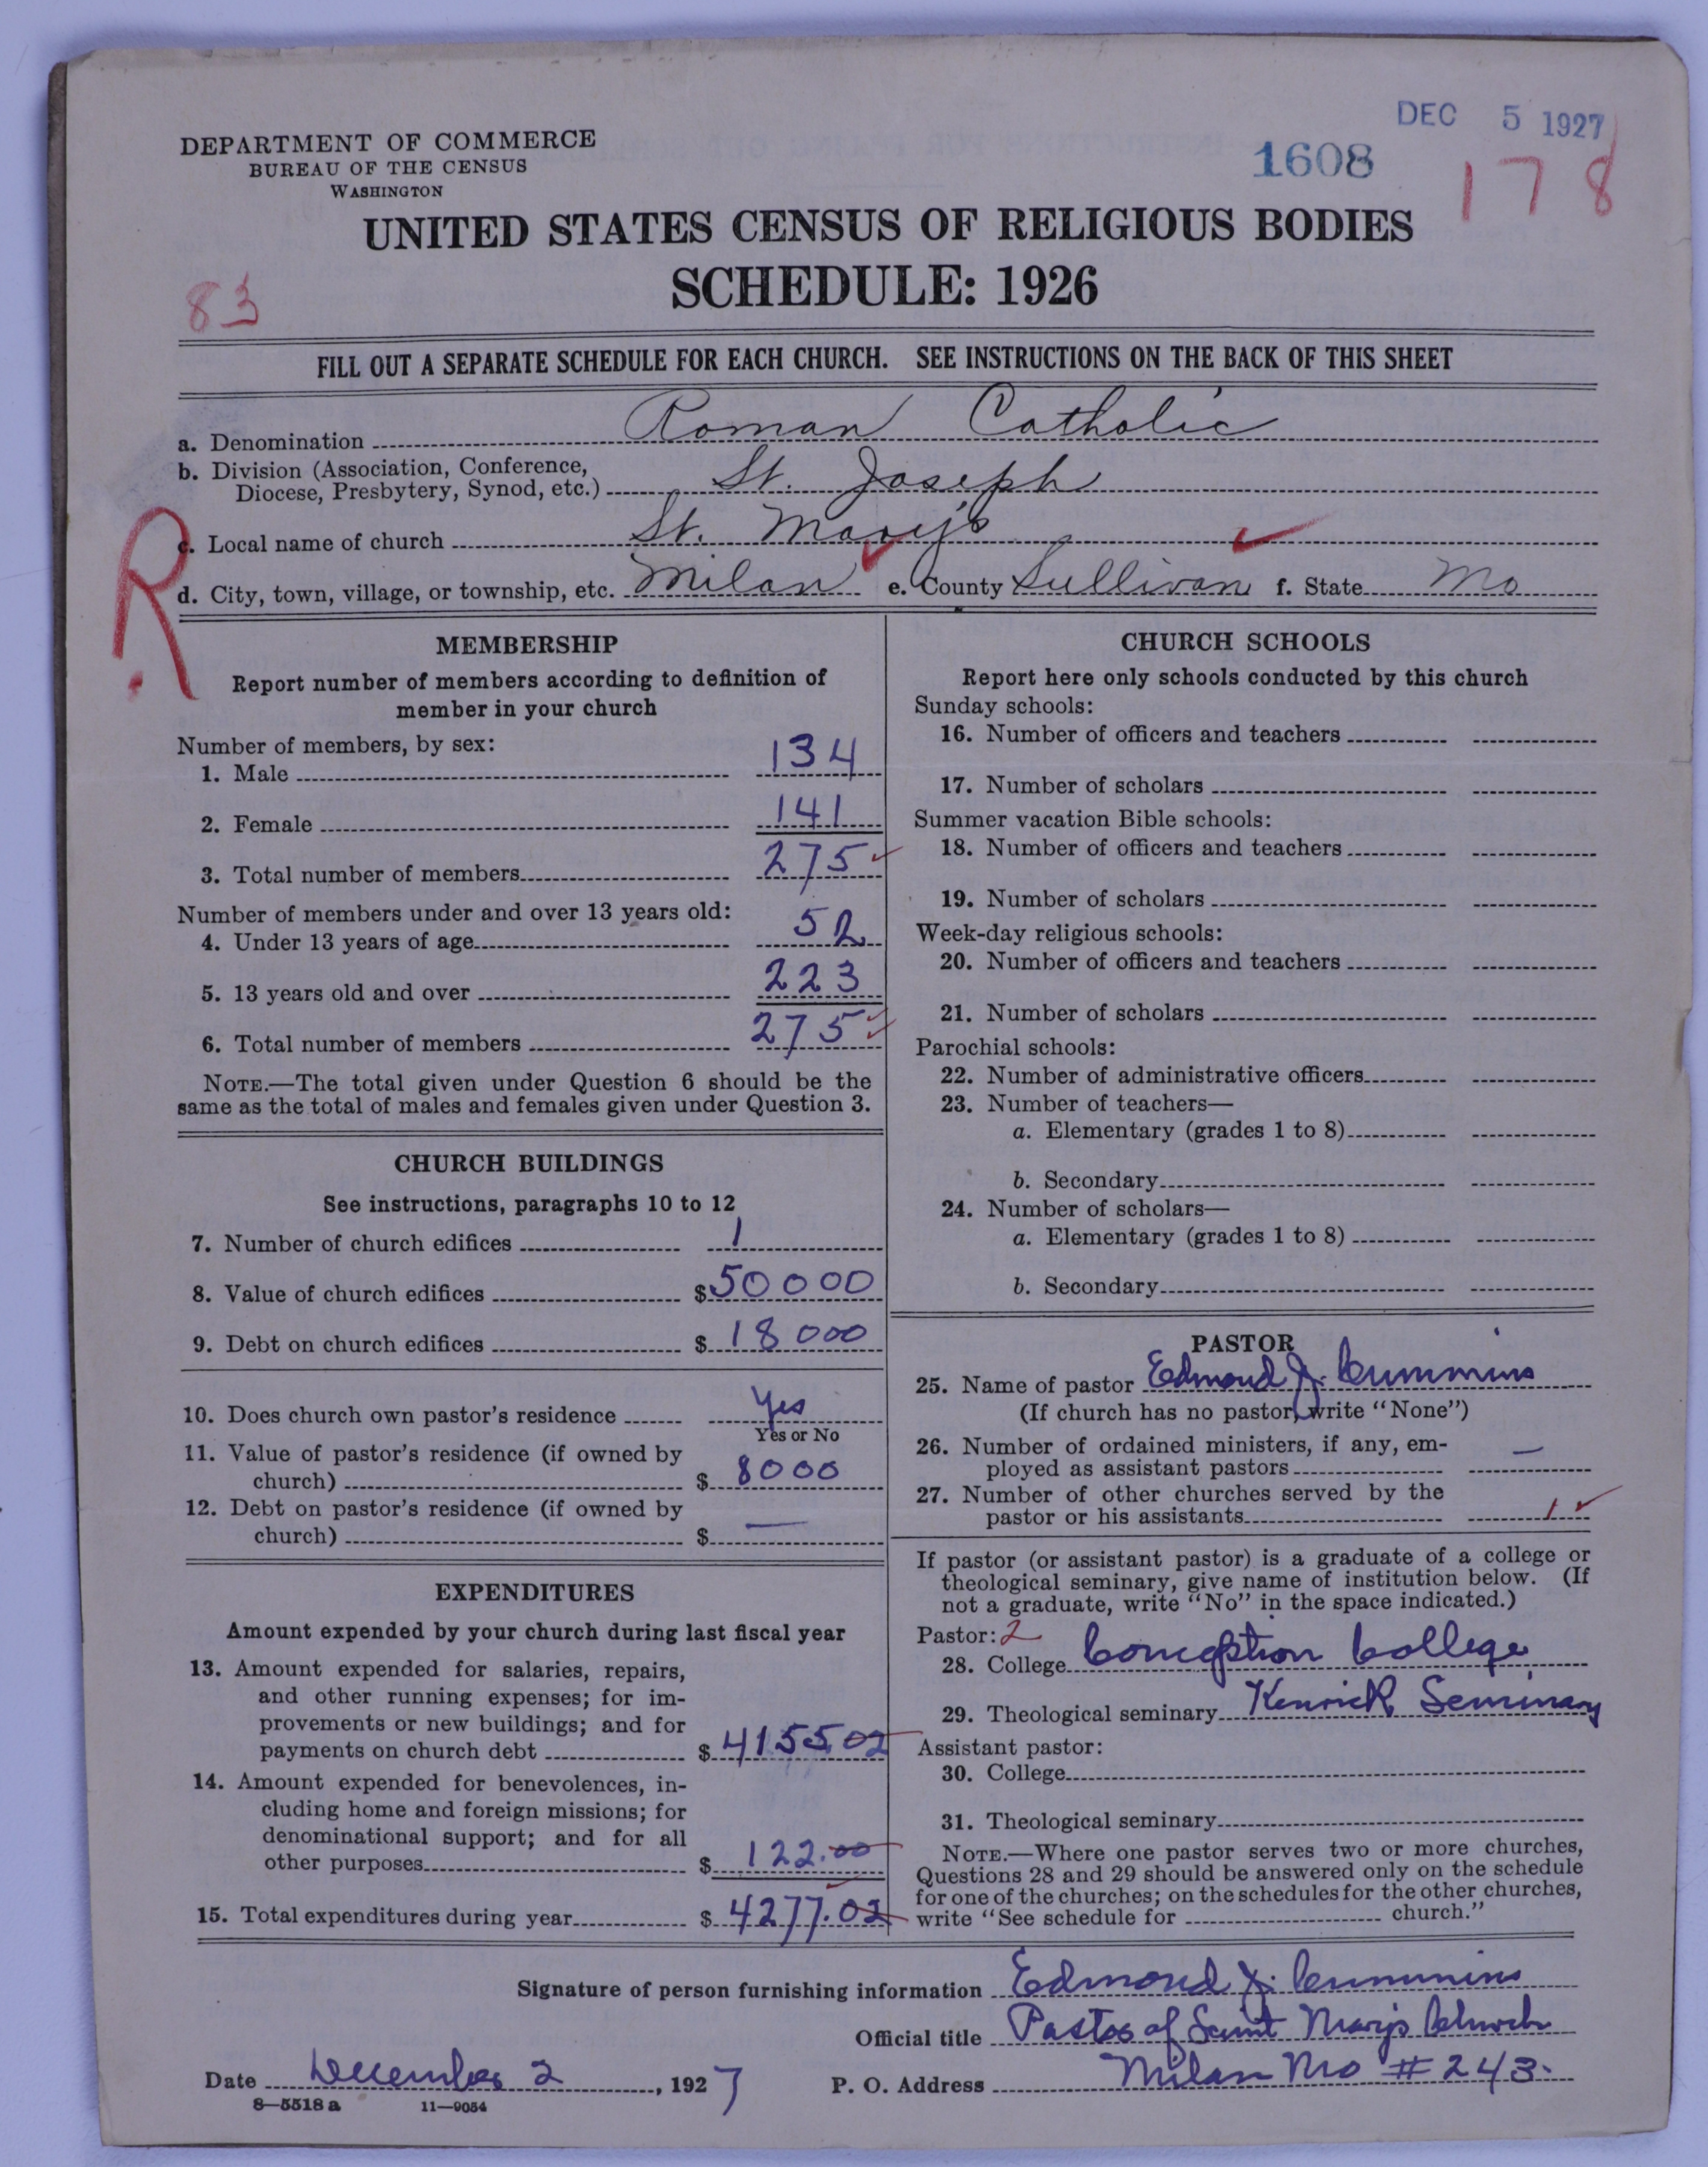 DEC 5 1927
1608
178
DEPARTMENT OF COMMERCE
BUREAU OF THE CENSUS
WASHINGTON
UNITED STATES CENSUS OF RELIGIOUS BODIES
SCHEDULE: 1926
83
FILL OUT A SEPARATE SCHEDULE FOR EACH CHURCH. SEE INSTRUCTIONS ON THE BACK OF THIS SHEET
a. Denomination Roman Catholic
b. Division (Association, Conference,
Diocese, Presbytery, Synod, etc.) St. Joseph
R
c. Local name of church St. Mary's
d. City, town, village, or township, etc. Milan e. County Sullivan f. State Mo
MEMBERSHIP
Report number of members according to definition of
member in your church
Number of members, by sex:
1. Male 134
2. Female 141
3. Total number of members 275
Number of members under and over 13 years old:
4. Under 13 years of age 52
5. 13 years old and over 223
6. Total number of members 275
NOTE.—The total given under Question 6 should be the
same as the total of males and females given under Question 3.
CHURCH BUILDINGS
See instructions, paragraphs 10 to 12
7. Number of church edifices 1
8. Value of church edifices $50000
9. Debt on church edifices $18000
10. Does church own pastor's residence Yes
Yes or No
11. Value of pastor's residence (if owned by
church) $8000
12. Debt on pastor's residence (if owned by
church) $ —
EXPENDITURES
Amount expended by your church during last fiscal year
13. Amount expended for salaries, repairs,
and other running expenses; for im-
provements or new buildings; and for
payments on church debt $4155.02
14. Amount expended for benevolences, in-
cluding home and foreign missions; for
denominational support; and for all
other purposes $122.00
15. Total expenditures during year $4277.02
CHURCH SCHOOLS
Report here only schools conducted by this church
Sunday schools:
16. Number of officers and teachers
17. Number of scholars
Summer vacation Bible schools:
18. Number of officers and teachers
19. Number of scholars
Week-day religious schools:
20. Number of officers and teachers
21. Number of scholars
Parochial schools:
22. Number of administrative officers
23. Number of teachers—
a. Elementary (grades 1 to 8)
b. Secondary
24. Number of scholars—
a. Elementary (grades 1 to 8)
b. Secondary
PASTOR
25. Name of pastor Edmond J. Cummins
(If church has no pastor, write "None")
26. Number of ordained ministers, if any, em-
ployed as assistant pastors —
27. Number of other churches served by the
pastor or his assistants 1
If pastor (or assistant pastor) is a graduate of a college or
theological seminary, give name of institution below. (If
not a graduate, write "No" in the space indicated.)
Pastor: 2
28. College Conception College
29. Theological seminary Kenrick Seminary
Assistant pastor:
30. College
31. Theological seminary
NOTE.—Where one pastor serves two or more churches,
Questions 28 and 29 should be answered only on the schedule
for one of the churches; on the schedules for the other churches,
write "See schedule for church."
Signature of person furnishing information Edmond J. Cummins
Official title Pastor of Saint Mary's Church
Date December 2, 1927 P. O. Address Milan Mo #243.
8—5518 a 11—9054